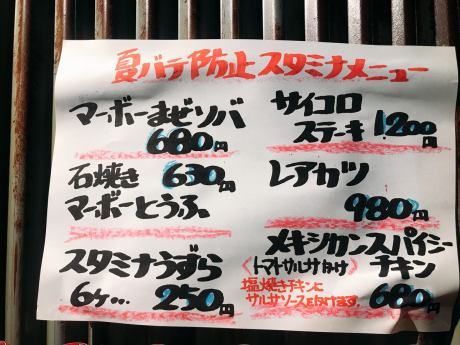 夏バテ防止スタミナメニュー
マーボーまぜソバ
680円
石焼き 630円
マーボーとうふ
スタミナうずら
6ヶ… 250円
サイコロ
ステーキ 1200円
レアカツ
980円
メキシカンスパイシー
〈トマトサルサかけ〉 チキン
塩焼きチキンに
サルサソースをかけてます。
680円